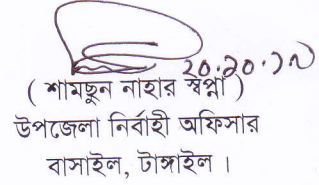 ২০.১০.১৯
( শামছুন নাহার স্বপ্না )
উপজেলা নির্বাহী অফিসার
বাসাইল, টাঙ্গাইল ।